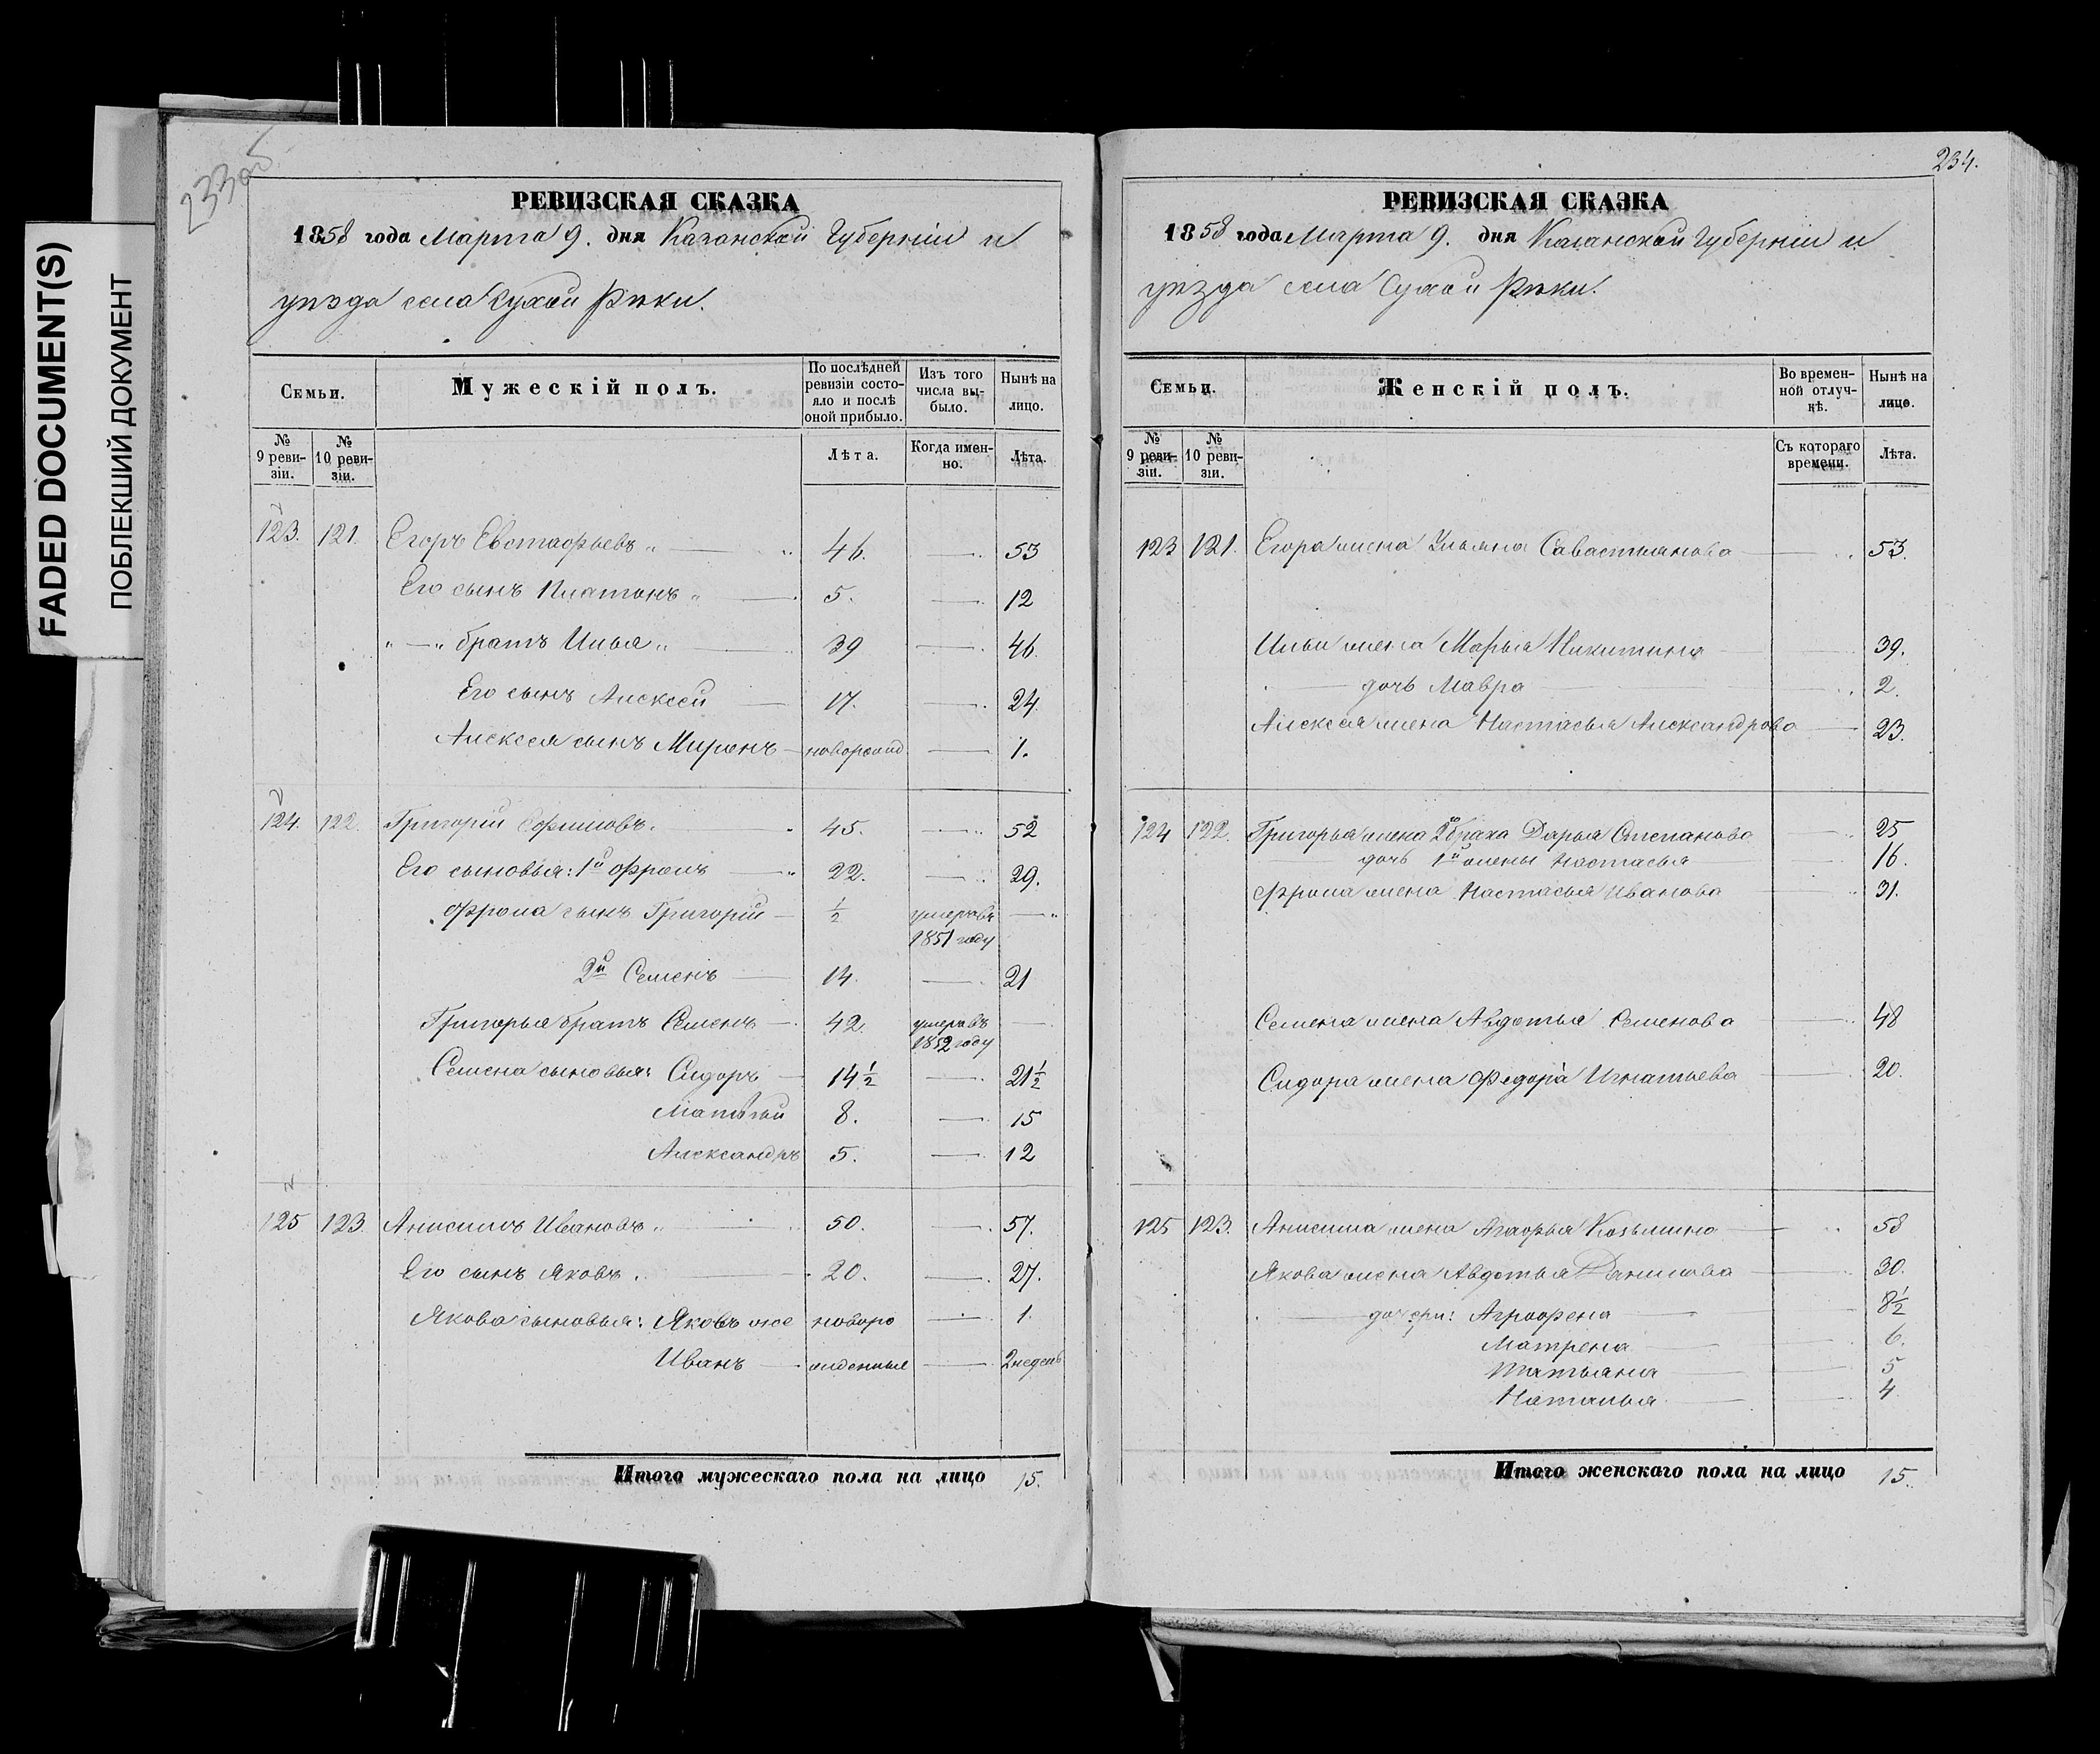 FADED DOCUMENT(S)
ПОБЛЕКШИЙ ДОКУМЕНТ
233об
РЕВИЗСКАЯ СКАЗКА
1858 года Марта 9. дня Казанской Губерніи и
уѣзда села Сухой Рѣки.
Семьи.
Мужескій полъ.
По послѣдней ревизіи состо-
яло и послѣ оной прибыло.
Изъ того числа вы-
было.
Нынѣ на лицо.
№ 9 реви-
зіи.
№ 10 реви-
зіи.
Лѣта.
Когда имен-
но.
Лѣта.
123. 121. Егоръ Евстафьевъ 46. 53
Его сынъ Платонъ 5. 12
" — " братъ Илья 39 46.
Его сынъ Алексей 17. 24.
Алексея сынъ Миронъ — новорожд 1.
124. 122. Григорій Ефимовъ. 45. 52
Его сыновья: 1й Фролъ 22. 29.
Фрола сынъ Григорій — 1/2 умеръ въ
1851 году
2й Семенъ 14. 21
Григорья братъ Семенъ — 42. умеръ въ
1852 году
Семена сыновья: Сидоръ 14 1/2 21 1/2
Матвѣй 8. 15
Александръ 5. 12
125 123. Анисимъ Ивановъ 50. 57.
Его сынъ Яковъ. 20. 27.
Якова сыновья: Яковъ же новоро 1.
Иванъ — жденные 2 недель
Итого мужескаго пола на лицо 15.
234.
РЕВИЗСКАЯ СКАЗКА
1858 года Марта 9. дня Казанской Губерніи и
уѣзда села Сухой Рѣки.
Семьи.
Женскій полъ.
Во времен-
ной отлуч-
кѣ.
Нынѣ на лицо.
№ 9 реви-
зіи.
№ 10 реви-
зіи.
Съ котораго времени.
Лѣта.
123 121. Егора жена Ульяна Савастьянова 53.
Ильи жена Марья Никитина 39.
— дочь Мавра 2.
Алексея жена Настасья Александрова 23.
124 122. Григорья жена 2го брака Дарья Степанова 25
дочь 1й жены Настасья 16.
Фрола жена Настасья Иванова 31.
Семена жена Авдотья Семенова 48
Сидора жена Федора Игнатьева 20.
125 123. Анисима жена Агафья Козьмина 58
Якова жена Авдотья Данилова 30.
— дочери: Аграфена 8 1/2
Матрена 6.
Татьяна 5
Наталья 4
Итого женскаго пола на лицо 15.